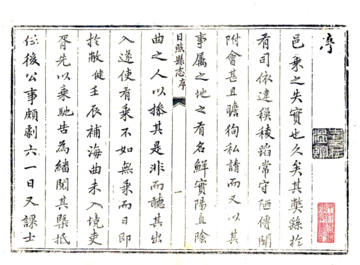 序
邑乘之失實也久矣其弊繇於
有司依違模稜蹈常守陋傳聞
附會甚且瞻徇私請而又以其
事屬之地之有名鮮實陽直陰
曲之人以摻其是非而聽其出
日照縣志序
入遂使有乘不如無乘而日即
於敝健壬辰補海曲未入境吏
胥先以乘馳告為繙閱其槩抵
任後公事頗劇六一日又課士